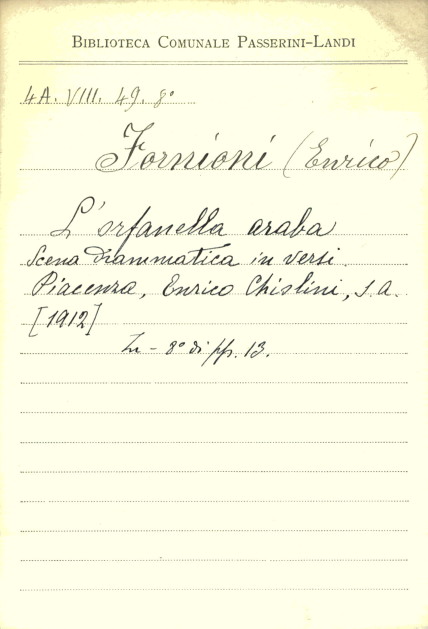 BIBLIOTECA COMUNALE PASSERINI-LANDI
4A. VIII. 49. 8º
Fornioni (Enrico)
L'orfanella araba
Scena drammatica in versi.
Piacenza, Enrico Chislini, s.a.
[1912]
In - 8º di pp. 13.